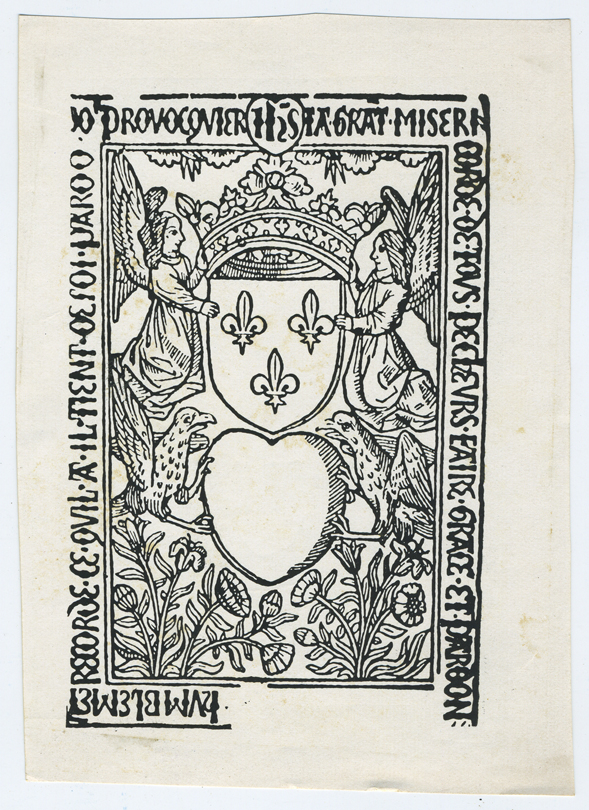 PROVOCQVIER IHS TA·GRAT·MISERI
CORDE·DE·TOVS·PECHEVRS·FAIRE·GRACE·ET·PARDON
HVMBLEMET
CE·QVIL·A·IL·TIENT·DE·